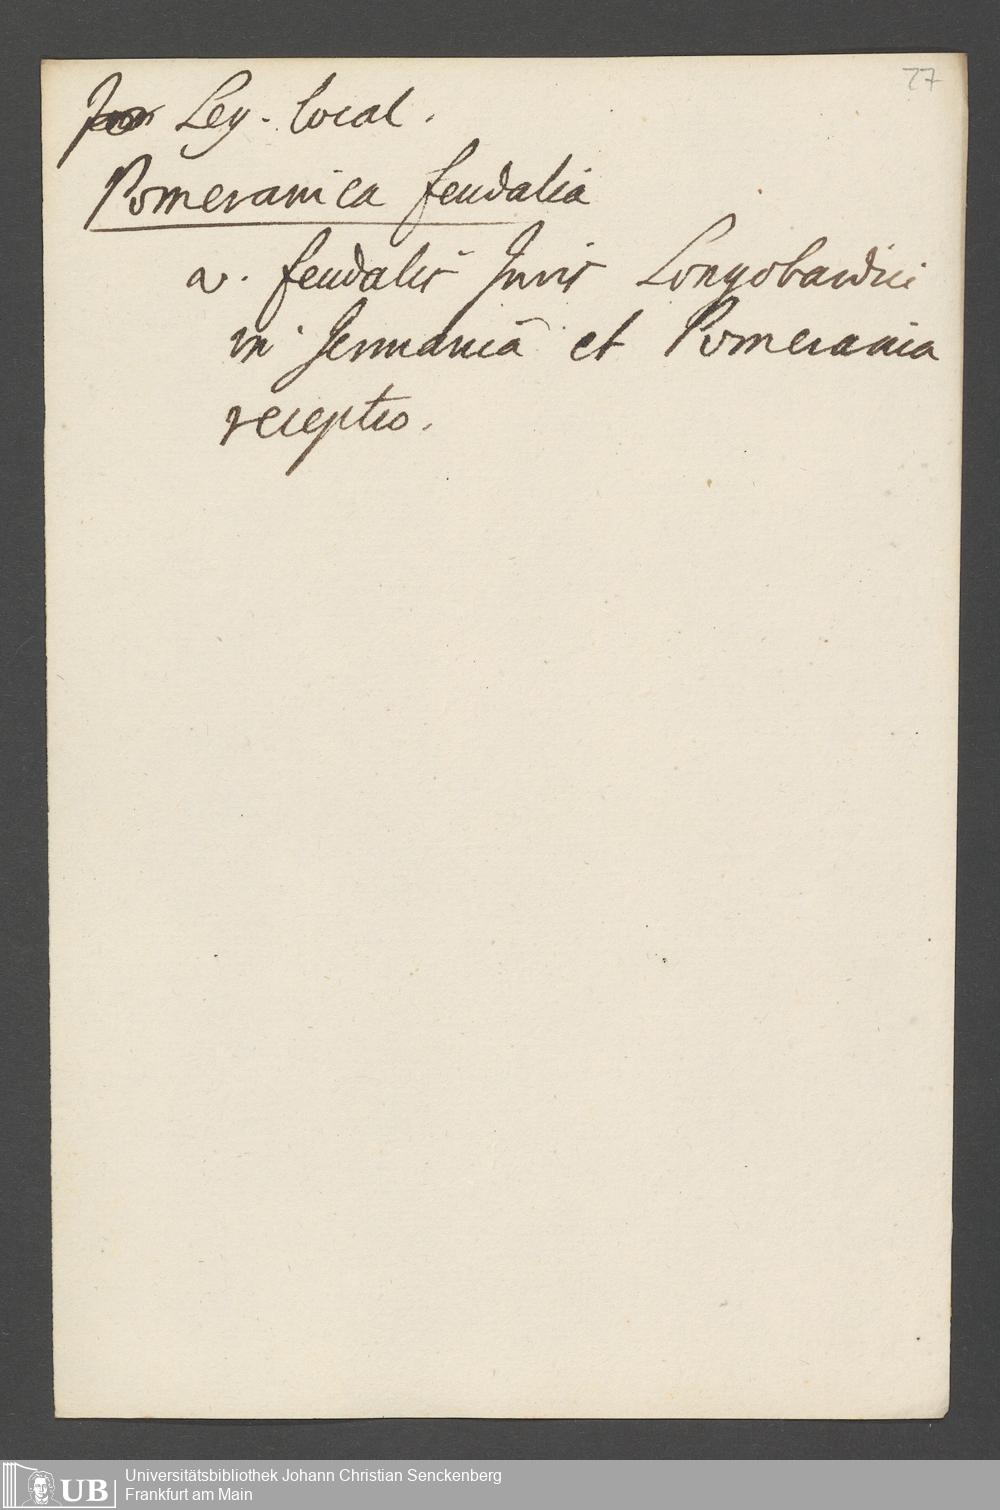 77
Leg. local.
Pomeranica feudalia
v. feudalis Juris Longobardici
in Germania et Pomerania
receptio.
UB
Universitätsbibliothek Johann Christian Senckenberg
Frankfurt am Main